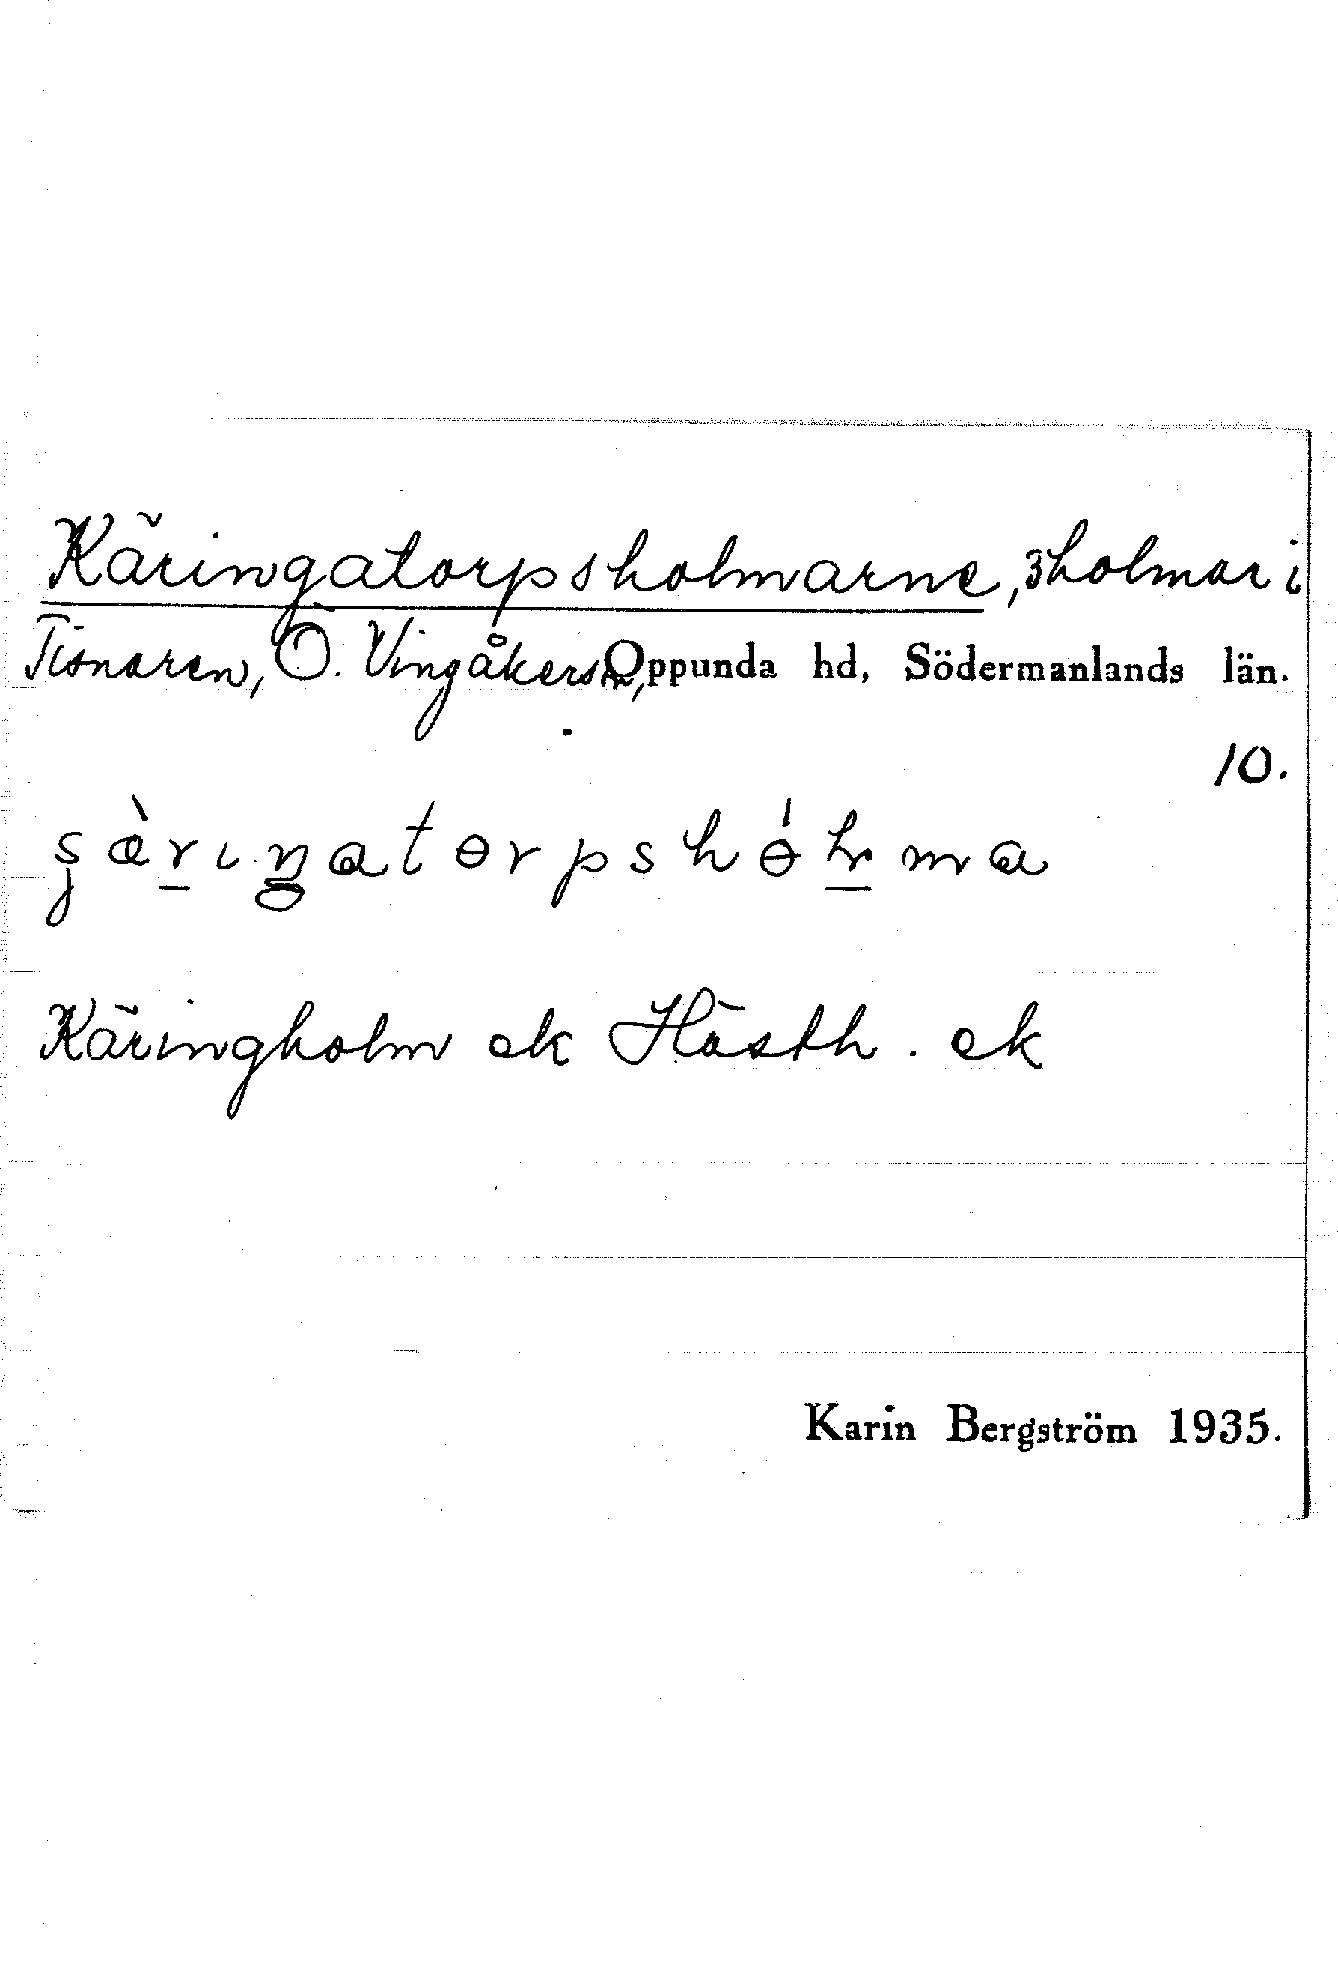 Käringatorpsholmarne, 3 holmar i
Tisnaren, Ö. Vingåkers sn, Oppunda hd, Södermanlands län.
10.
ʂæ̀rıŋatɵrpshɵ́ɽma
Käringholm ek Hästh. ek
Karin Bergström 1935.